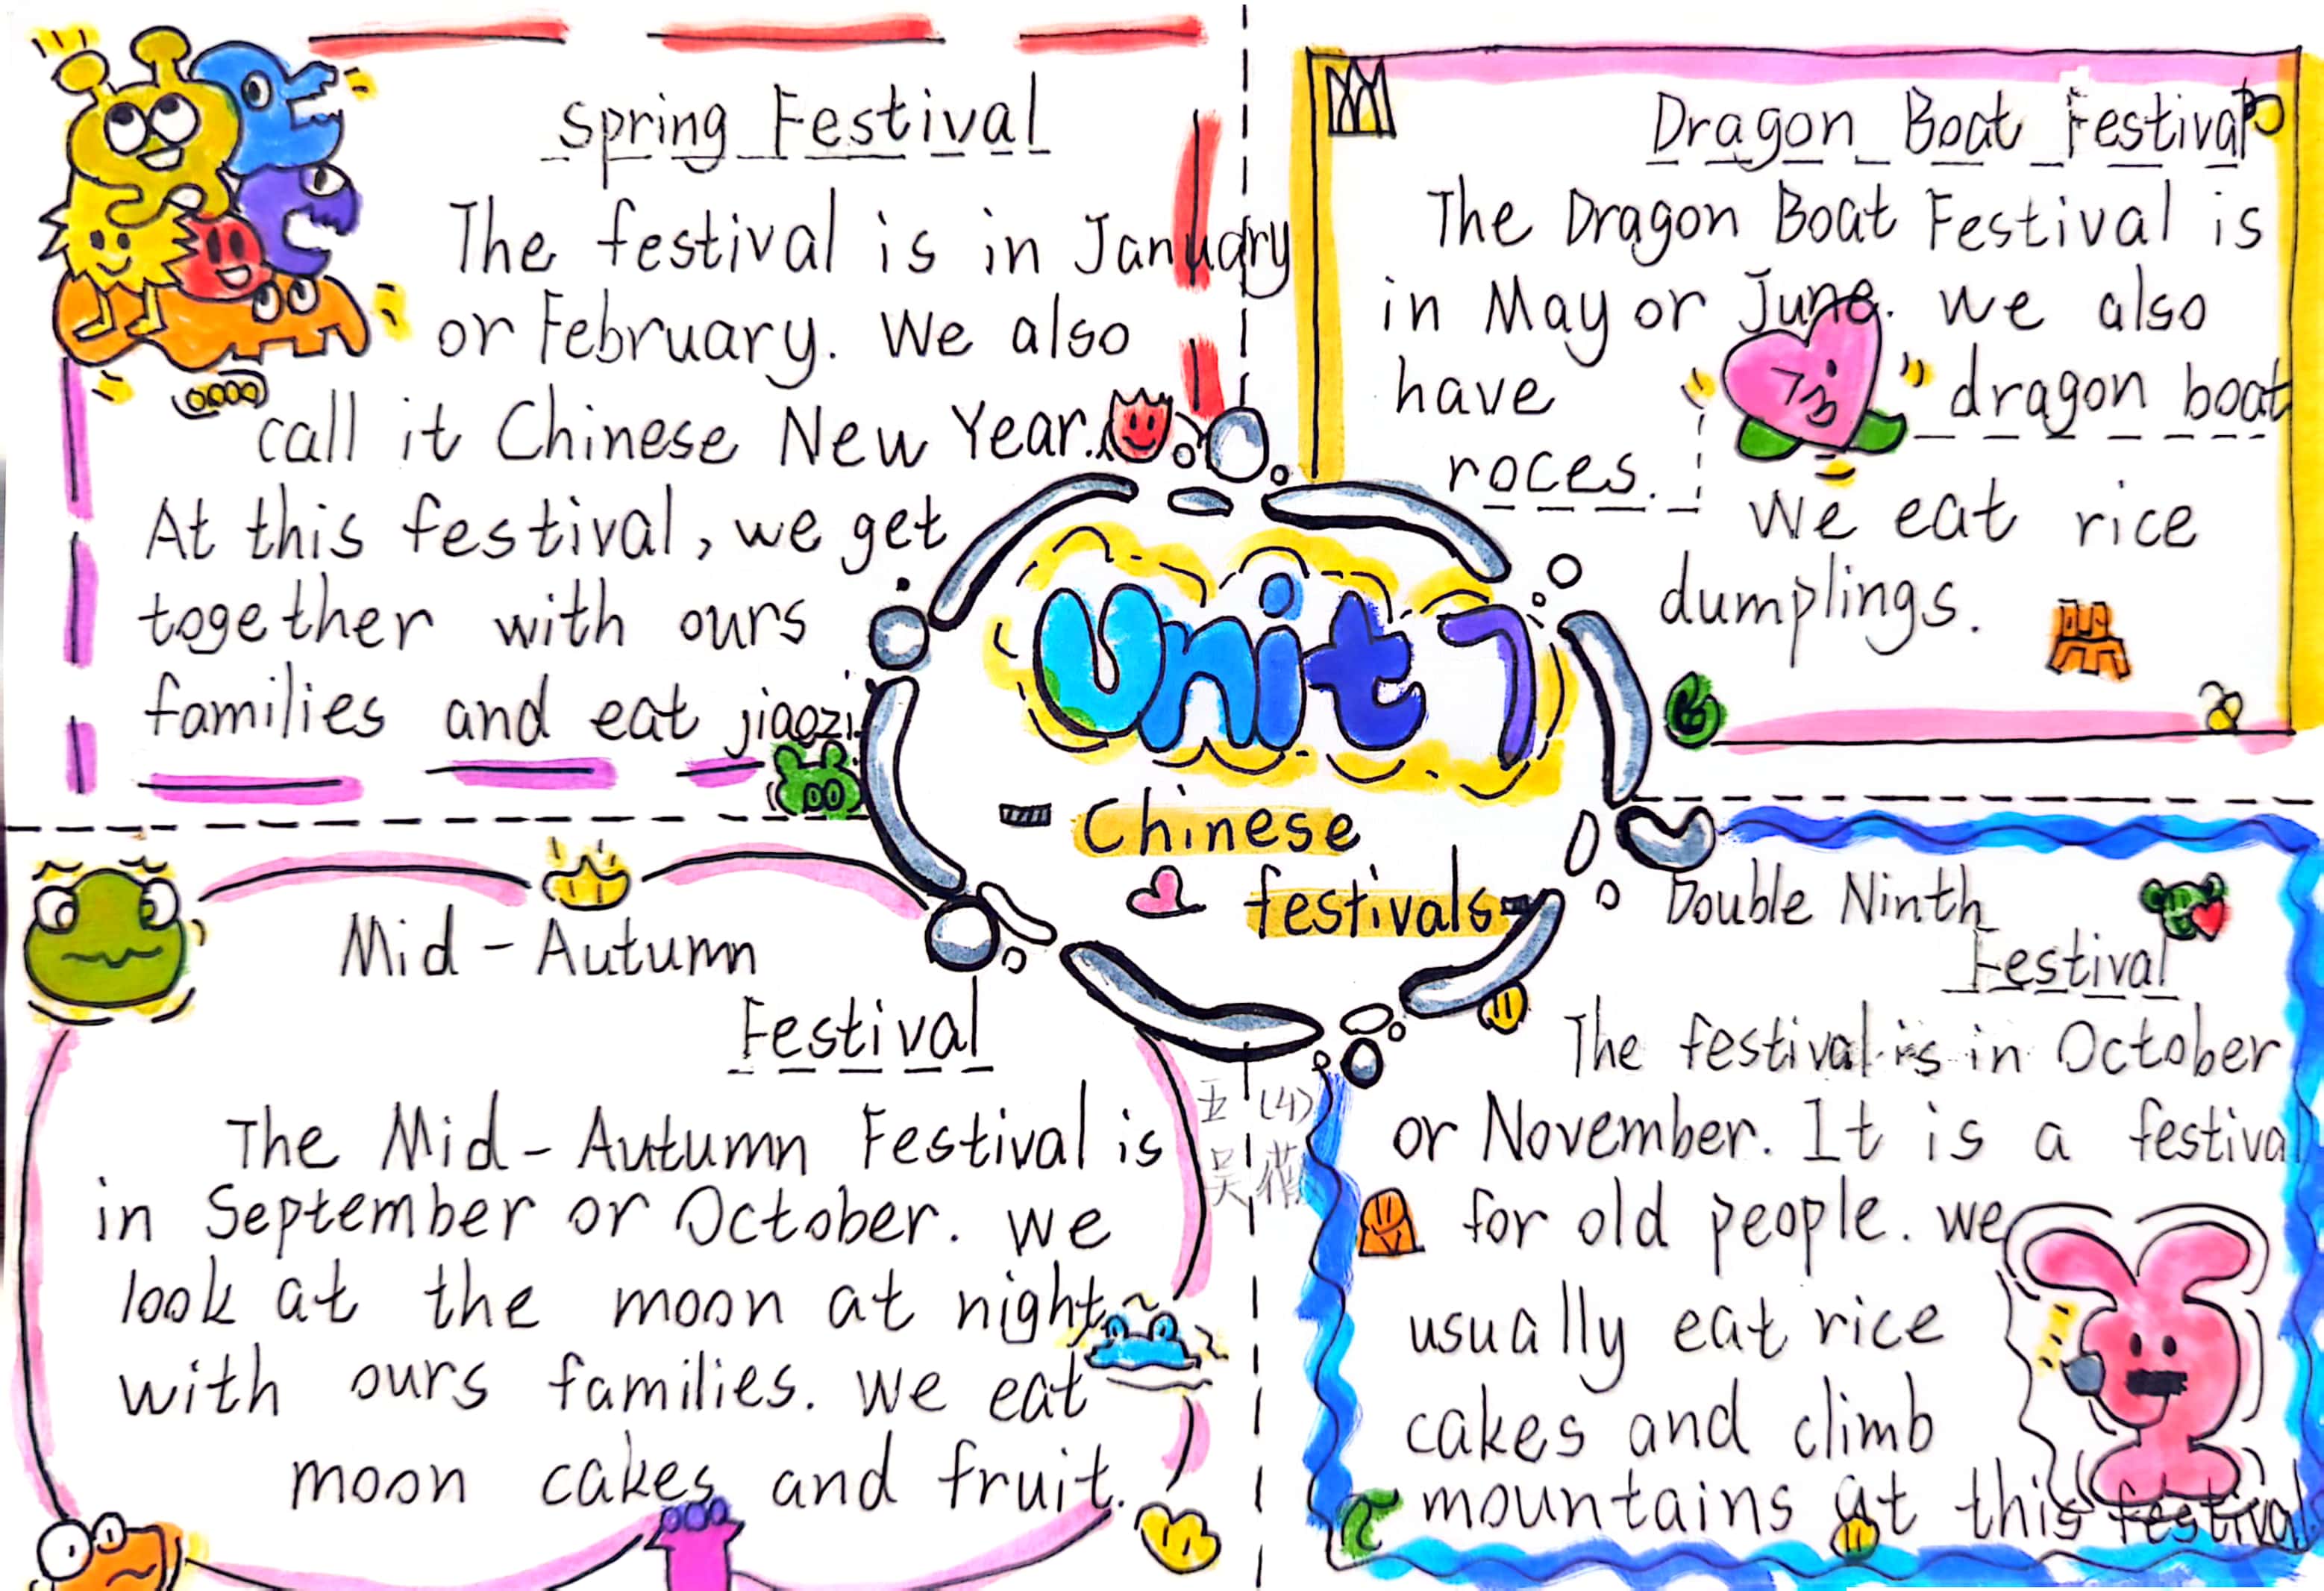 Spring Festival
The festival is in January
or February. We also
call it Chinese New Year.
At this festival, we get
together with ours
families and eat jiaozi.
Dragon Boat Festival
The Dragon Boat Festival is
in May or June. We also
have dragon boat
roces.
We eat rice
dumplings.
Unit 7
Chinese
festivals
Mid-Autumn
Festival
The Mid-Autumn Festival is
in September or October. We
look at the moon at night
with ours families. We eat
moon cakes and fruit.
Double Ninth
Festival
The festival is in October
or November. It is a festival
for old people. We
usually eat rice
cakes and climb
mountains at this festival.
五(4)
吴